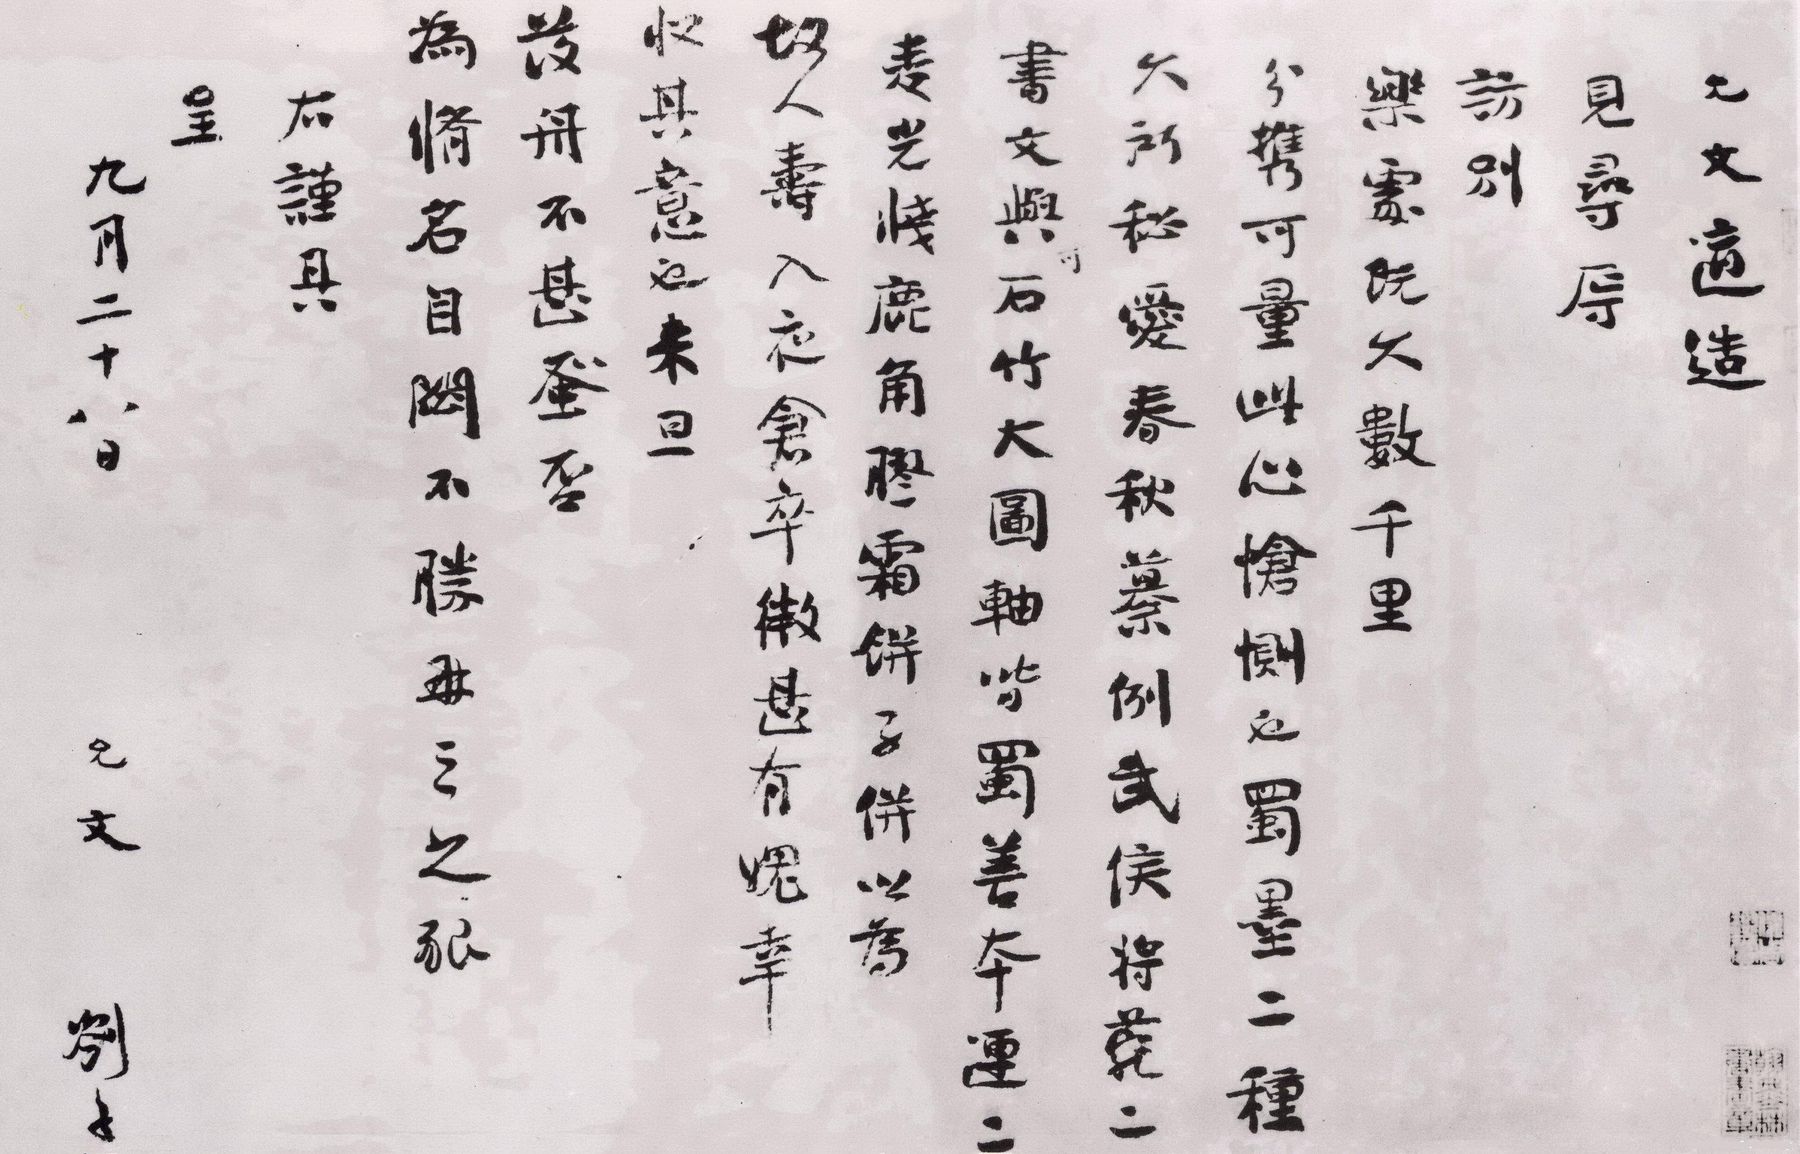 允文適造
見尋辱
訪別
樂處既久數千里
分攜可量此心愴惻也蜀墨二種
久所秘愛春秋纂例武侯將苑二
書文與可石竹大圖軸皆蜀善本運二
麦光牋鹿角膠霜餅子併以為
故人壽入夜倉卒微甚有愧幸
收其意也未旦
發舟不甚蚤否
為脩名目闕不勝再三之
右謹具
呈
九月二十八日 允文